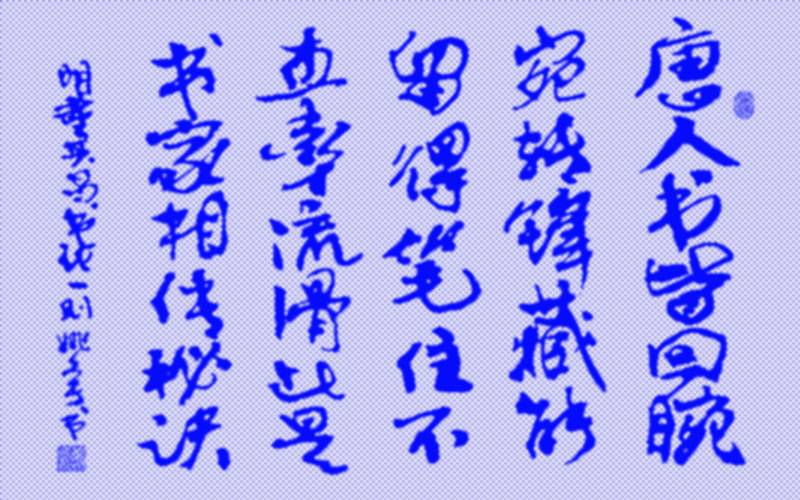 唐人书皆回腕
宛转锋藏能
留得笔住不
直率流滑此是
书家相传秘诀
明董其昌书论一则姚书